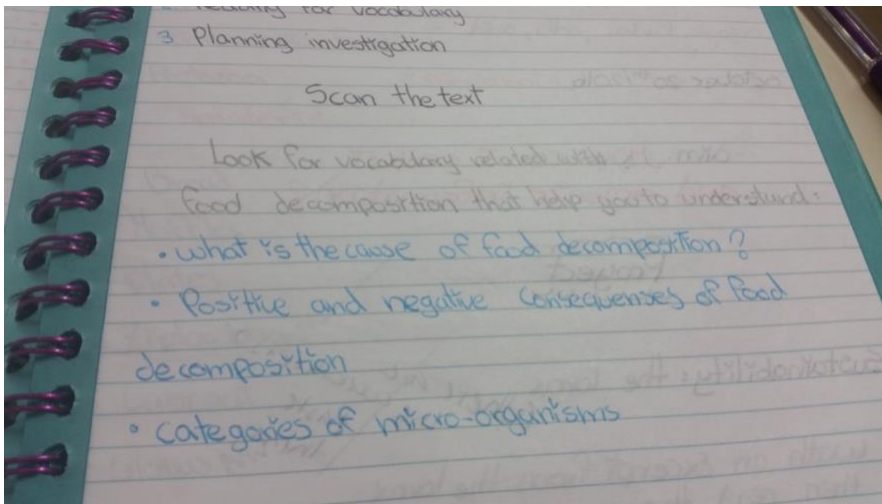 Reading for vocabulary
3 Planning investigation
Scan the text
Look for vocabulary related with
food decomposition that help you to understand:
• what is the cause of food decomposition?
• Positive and negative consequenses of food
decomposition
• categories of micro-organisms